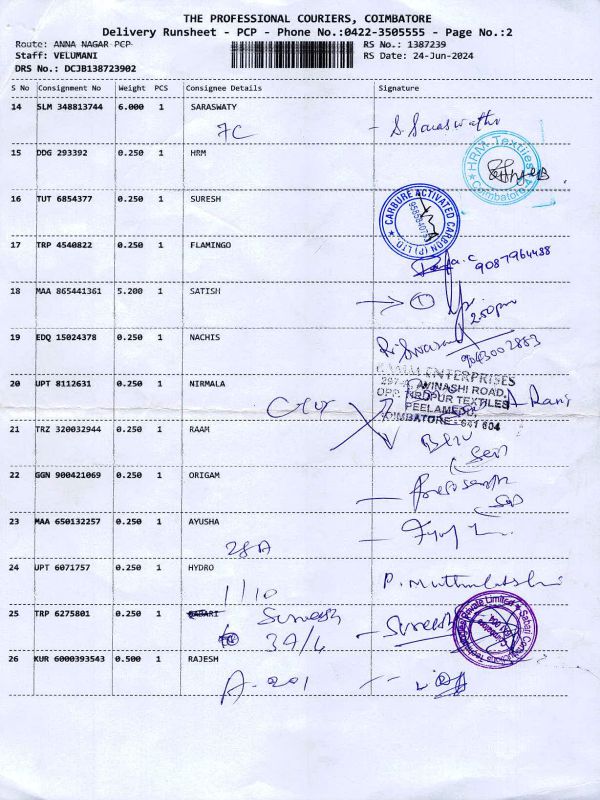 THE PROFESSIONAL COURIERS, COIMBATORE
Delivery Runsheet - PCP - Phone No.:0422-3505555 - Page No.:2
Route: ANNA NAGAR PCP
RS No.: 1387239
Staff: VELUMANI
RS Date: 24-Jun-2024
DRS No.: DCJB138723902
S No Consignment No Weight PCS Consignee Details Signature
14 SLM 348813744 6.000 1 SARASWATY
7C
S. Saraswathi
15 DDG 293392 0.250 1 HRM
HRM-Textiles Coimbatore-4
16 TUT 6854377 0.250 1 SURESH
CARBURE ACTIVATED CARBON (P) LTD
17 TRP 4540822 0.250 1 FLAMINGO
9087964488
18 MAA 865441361 5.200 1 SATISH
1
2.50pm
19 EDQ 15024378 0.250 1 NACHIS
9043002883
20 UPT 8112631 0.250 1 NIRMALA
ENTERPRISES
AVINASHI ROAD,
TEXTILES
PEELAMEDU
COIMBATORE - 641 004
A Rani
21 TRZ 320032944 0.250 1 RAAM
22 GGN 900421069 0.250 1 ORIGAM
23 MAA 650132257 0.250 1 AYUSHA
28A
24 UPT 6071757 0.250 1 HYDRO
1/10
P. Muthulakshmi
25 TRP 6275801 0.250 1 BABARI
Suresh
39/4
Suresh
26 KUR 6000393543 0.500 1 RAJESH
A-201